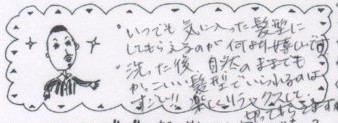 ・いつでも 気に入った髪型に
してもらえるのが 何より嬉しいです
・洗った後、自然のままでも
かっこいい髪型でいられるのは
すごい!! 楽に